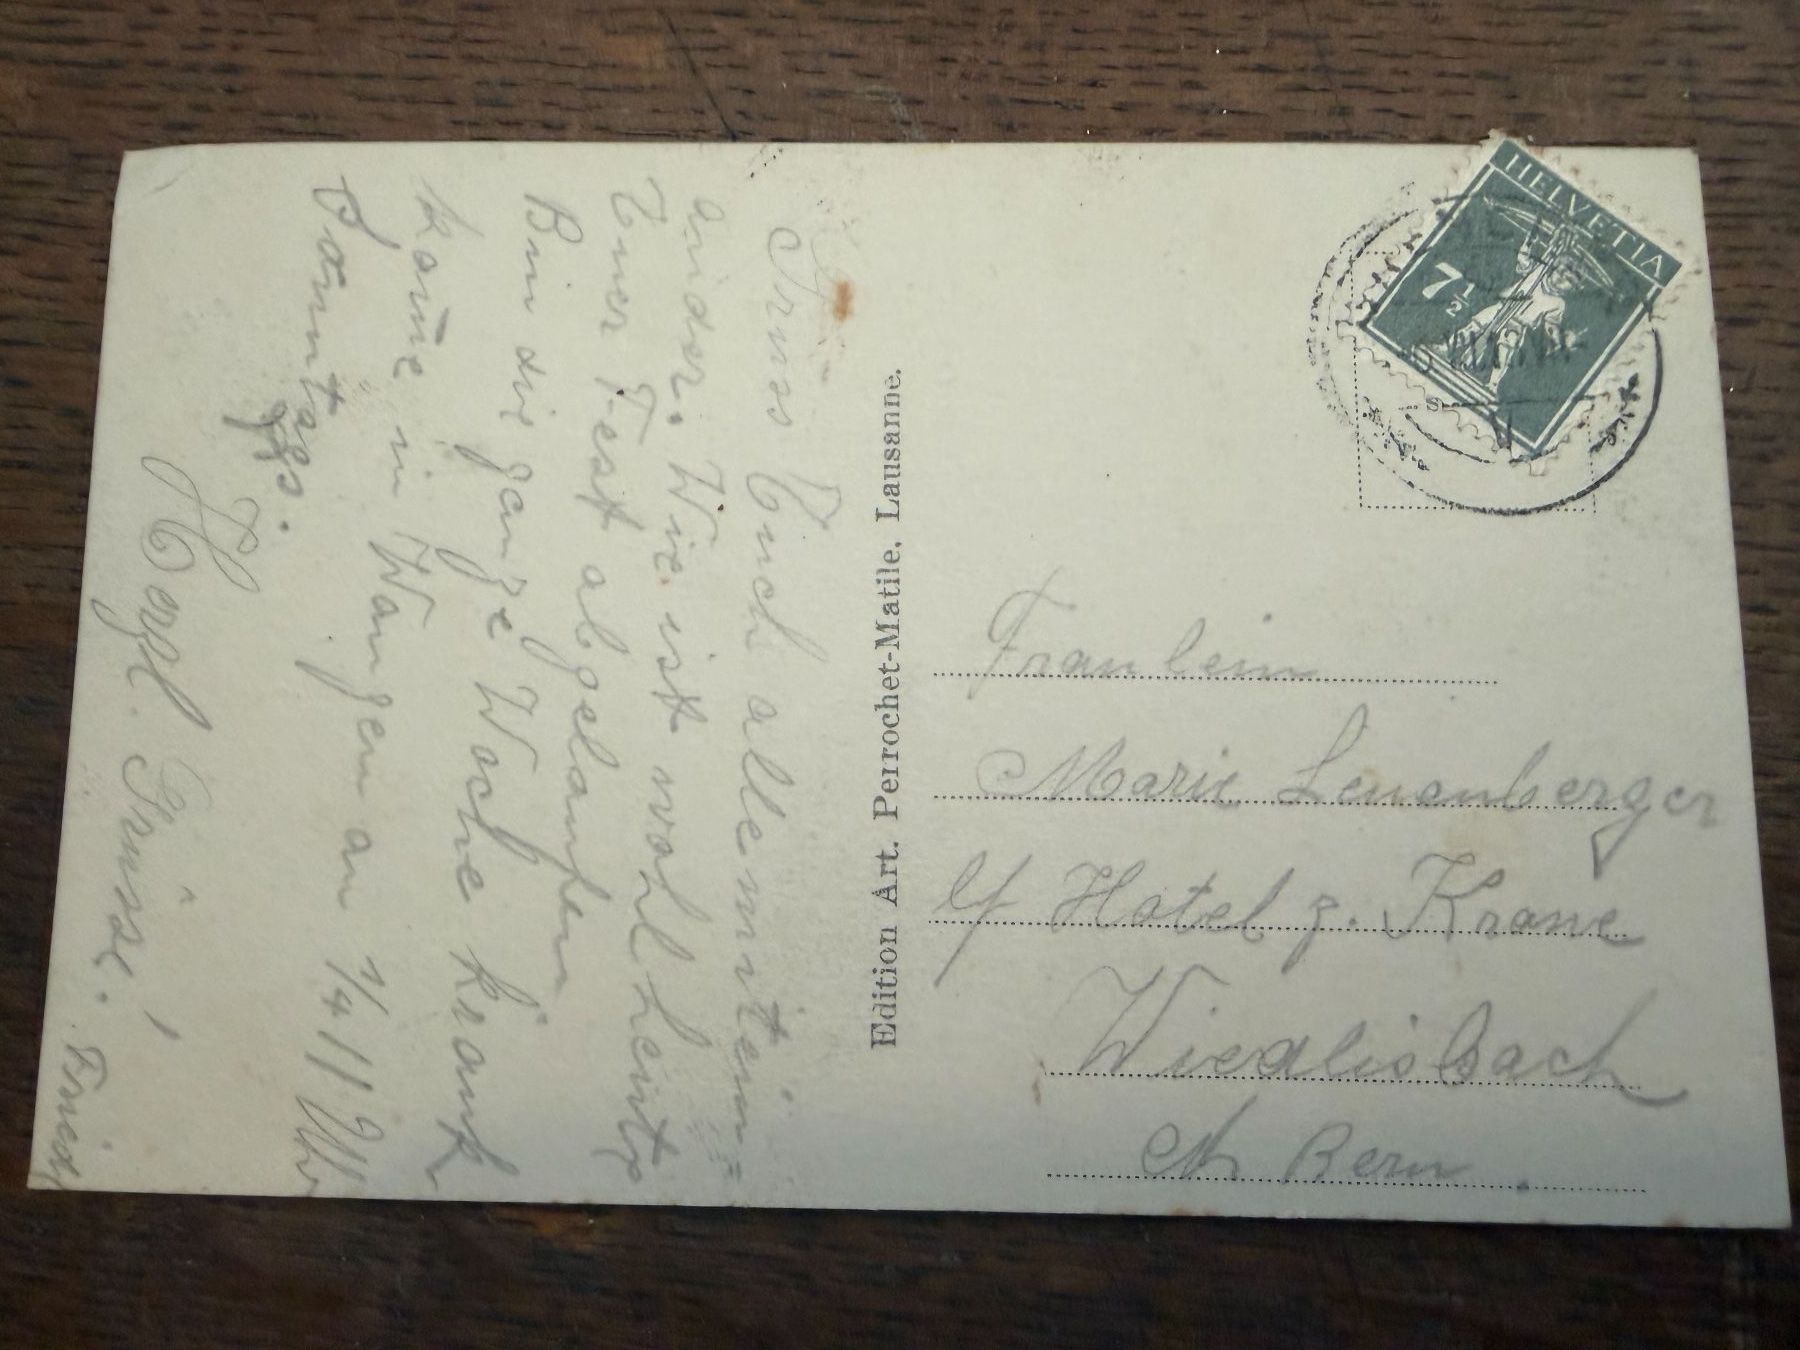 Gruss Euch alle mitein=
ander. Wie ist wohl heute
Euer Fest abgelaufen
Bin die ganze Woche krank
Kome in Wangen an 1/4 11 Uhr
Samntags.
Herzl. Grüsse. !
Edition Art. Perrochet-Matile, Lausanne.
HELVETIA
7½
Fraulein
Marie Leuenberger
Hotel z. Krone
Wiedlisbach
Bern